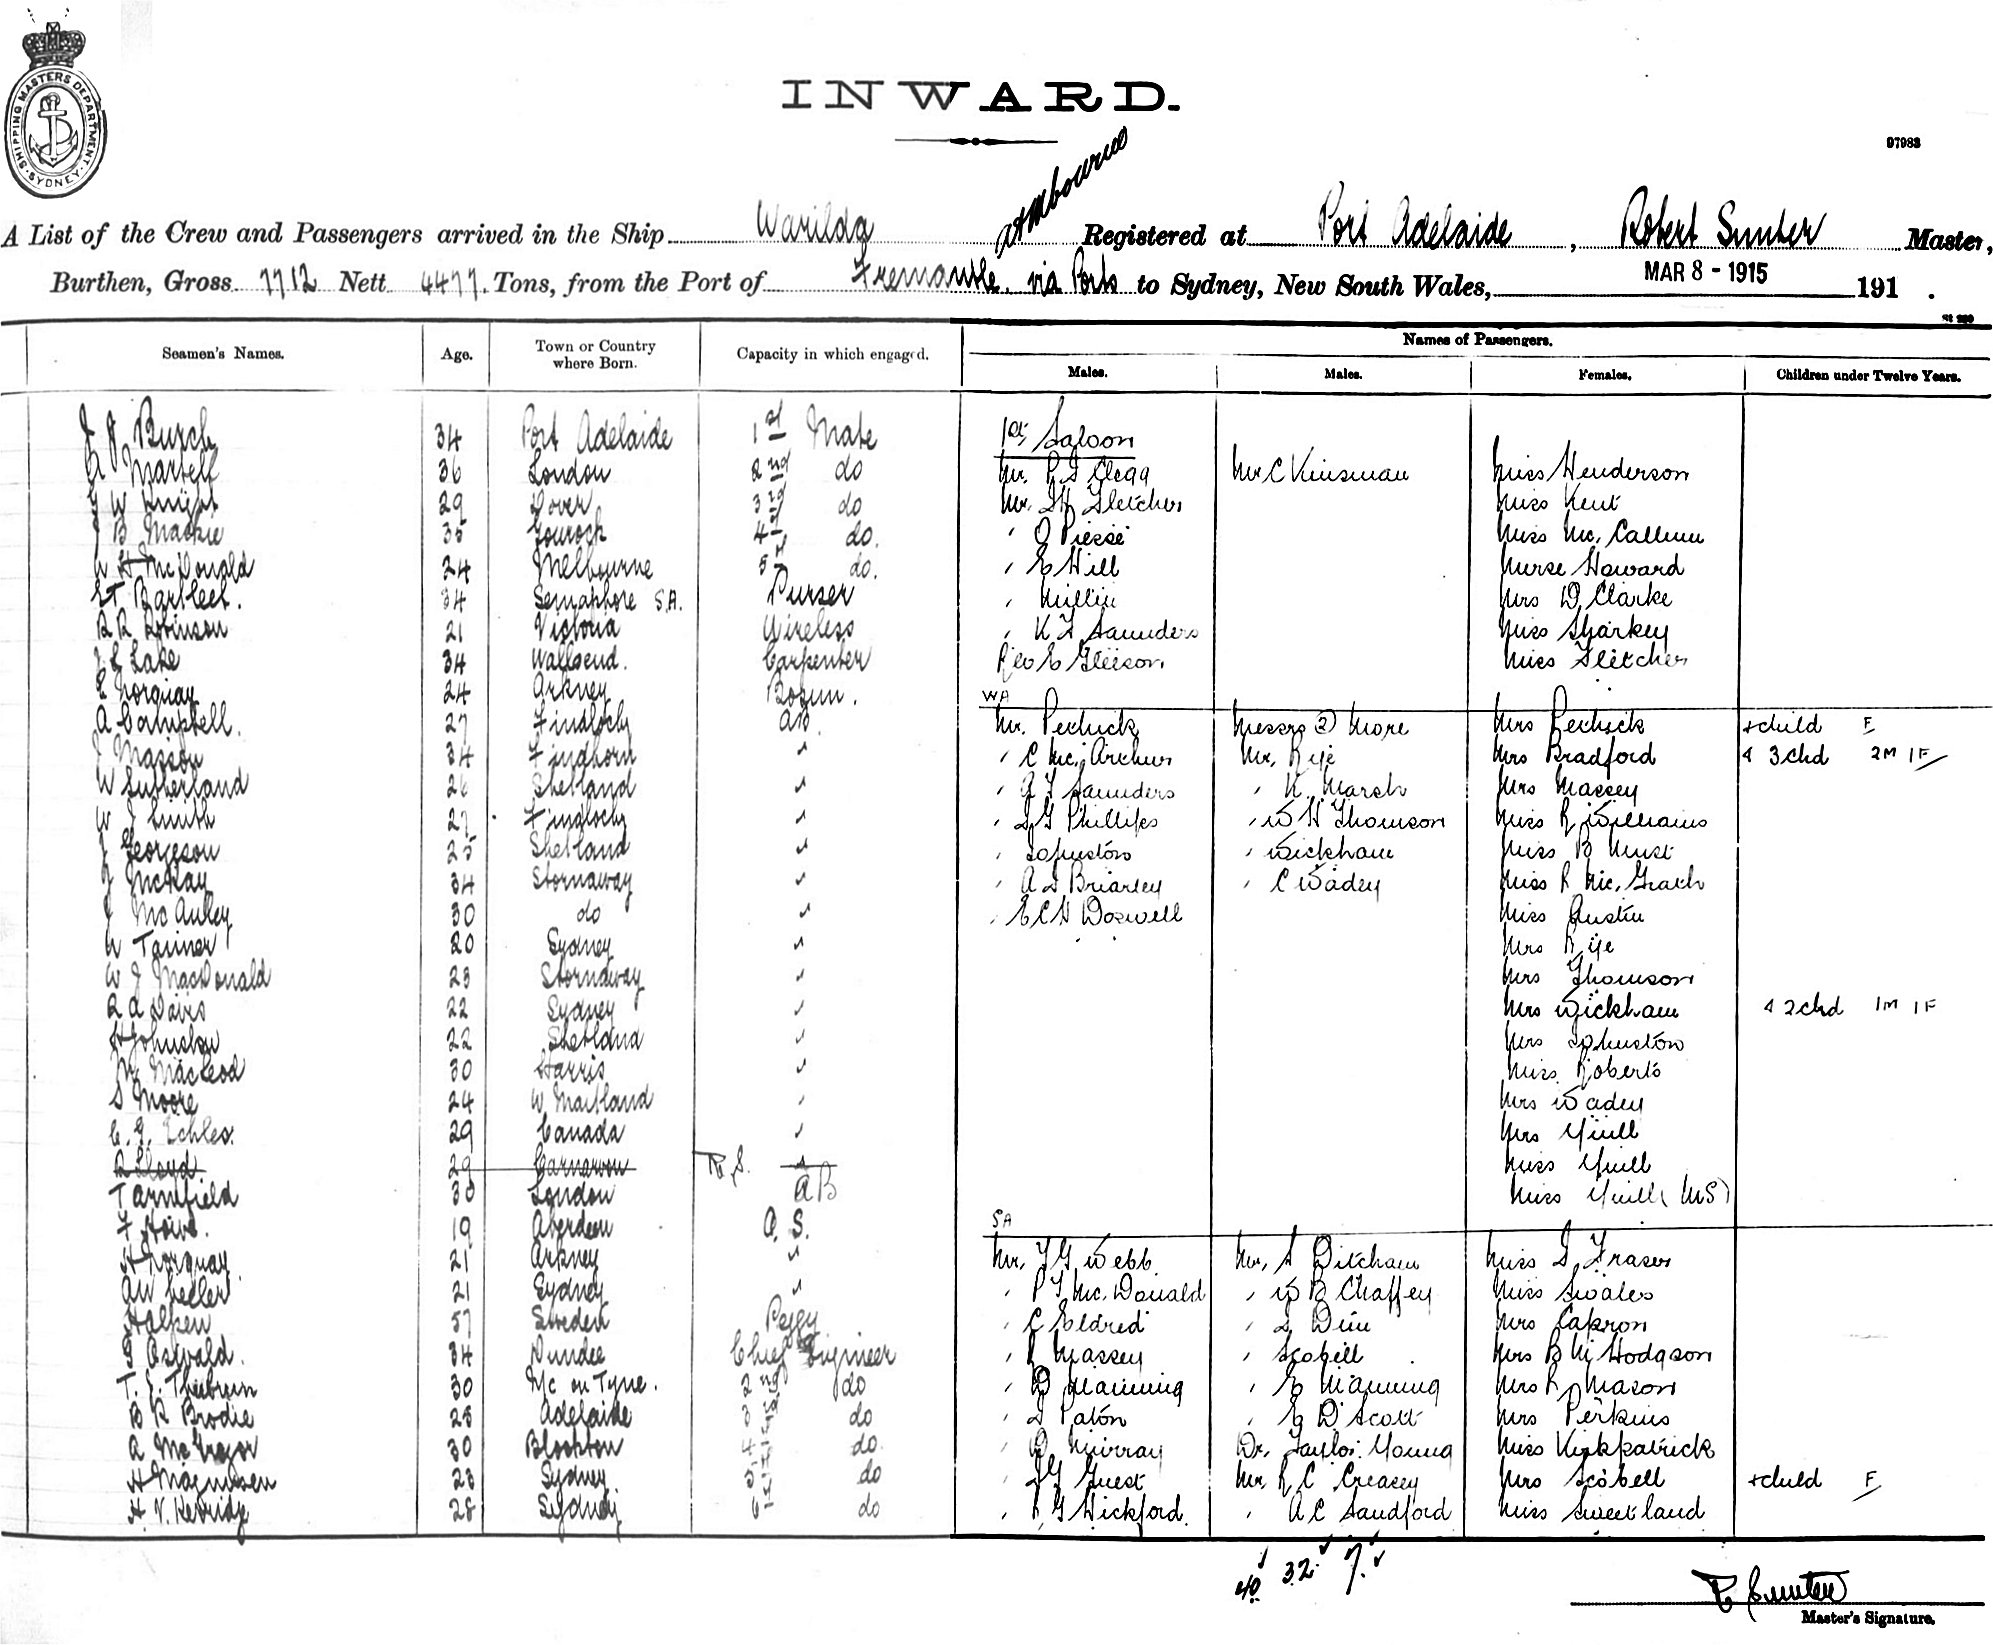 SHIPPING MASTERS DEPARTMENT · SYDNEY ·
INWARD.
97983
A List of the Crew and Passengers arrived in the Ship Warilda Registered at Port Adelaide, Robert Sunter Master,
Burthen, Gross 7712 Nett 4477. Tons, from the Port of Fremantle via Ports to Sydney, New South Wales, MAR 8 - 1915 191 .
Names of Passengers.
Seamen's Names. Age. Town or Country where Born. Capacity in which engaged. Males. Males. Females. Children under Twelve Years.
J J Burch 34 Port Adelaide 1st Mate 1st Saloon
Martell 36 London 2nd do Mr. Clegg Mr C Kinsman Miss Henderson
W Knight 29 Dover 3rd do Mr. Fletcher Miss Kent
J B Mackie 35 Gourock 4th do. " Piesse Miss Mc. Callum
W H McDonald 24 Melbourne 5 do. " E Hill Nurse Howard
Bartleet. 34 Semaphore S.A. Purser " Millin Mrs D Clarke
R R Robinson 21 Victoria Wireless " Saunders Miss Sharkey
Lake 34 Wallsend. Carpenter Rev E Gleeson Miss Fletcher
Norquay 24 Orkney Bosun.
WA
A Campbell. 27 Findlochy AB. Mr. Pechick Messrs 2 More Mrs Pechick + child F
J Masson 34 Findhorn " " C Mc. Arthur Mr. Rye Mrs Bradford & 3 Chd 2M 1F
W Sutherland 26 Shetland " " Saunders " K. Marsh Mrs Massey
W J Smith 27 Findlochy " " Phillips " W H Thomson Miss R Williams
J Georgeson 25 Shetland " " Johnston " Wickham Miss B Must
McKay 34 Stornaway " " Briarley " C Wadey Miss Mc. Grath
J McAuley 30 do " " E C H Doswell Miss Austin
W Tanner 20 Sydney " Mrs Rye
W J MacDonald 28 Stornaway " Mrs Thomson
R A Davis 22 Sydney " Mrs Wickham & 2 Chd 1M 1F
H Johnston 22 Shetland " Mrs Johnston
Macleod 30 Harris " Miss Roberts
S Moore 24 W Maitland " Mrs Wadey
C. J. Echles. 29 Canada " Mrs Yuill
R Lloyd 29 Carnarvon " Miss Yuill
Tarnfield 30 London AB Miss Yuill (MS)
F Howe. 19 Aberdeen O.S.
SA
H Norquay 21 Orkney " Mr. Webb Mr. Ditcham Miss Fraser
A W Seeler 21 Sydney " " Mc. Donald " W B Chaffey Miss Swales
Halpen 57 Sweden Peggy " C Eldred " Dim Mrs Capron
Oswald. 34 Dundee Chief Engineer " R Massey " Scobell Mrs B M Hodgson
30 Nc on Tyne. 2nd do " D Manning " E Manning Mrs R Mason
B R Brodie 28 Adelaide 3 do " Paton " E D Scott Mrs Perkins
A McGregor 30 4 do. " D Murray Dr. Taylor Young Miss Kirkpatrick
H Magnussen 23 Sydney 5 do " Guest Mr. R C Creasey Mrs Scobell + child F
H. V. Kerridge 28 Sydney 6 do " Hickford. " A C Sandford Miss Sweetland
40 32. 7.
R Sunter
Master's Signature.